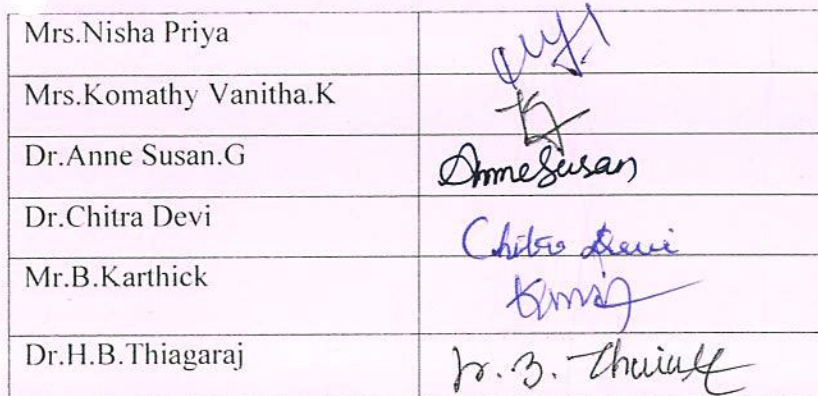 Mrs.Nisha Priya
Mrs.Komathy Vanitha.K
Dr.Anne Susan.G AnneSusan
Dr.Chitra Devi Chitra Devi
Mr.B.Karthick
Dr.H.B.Thiagaraj